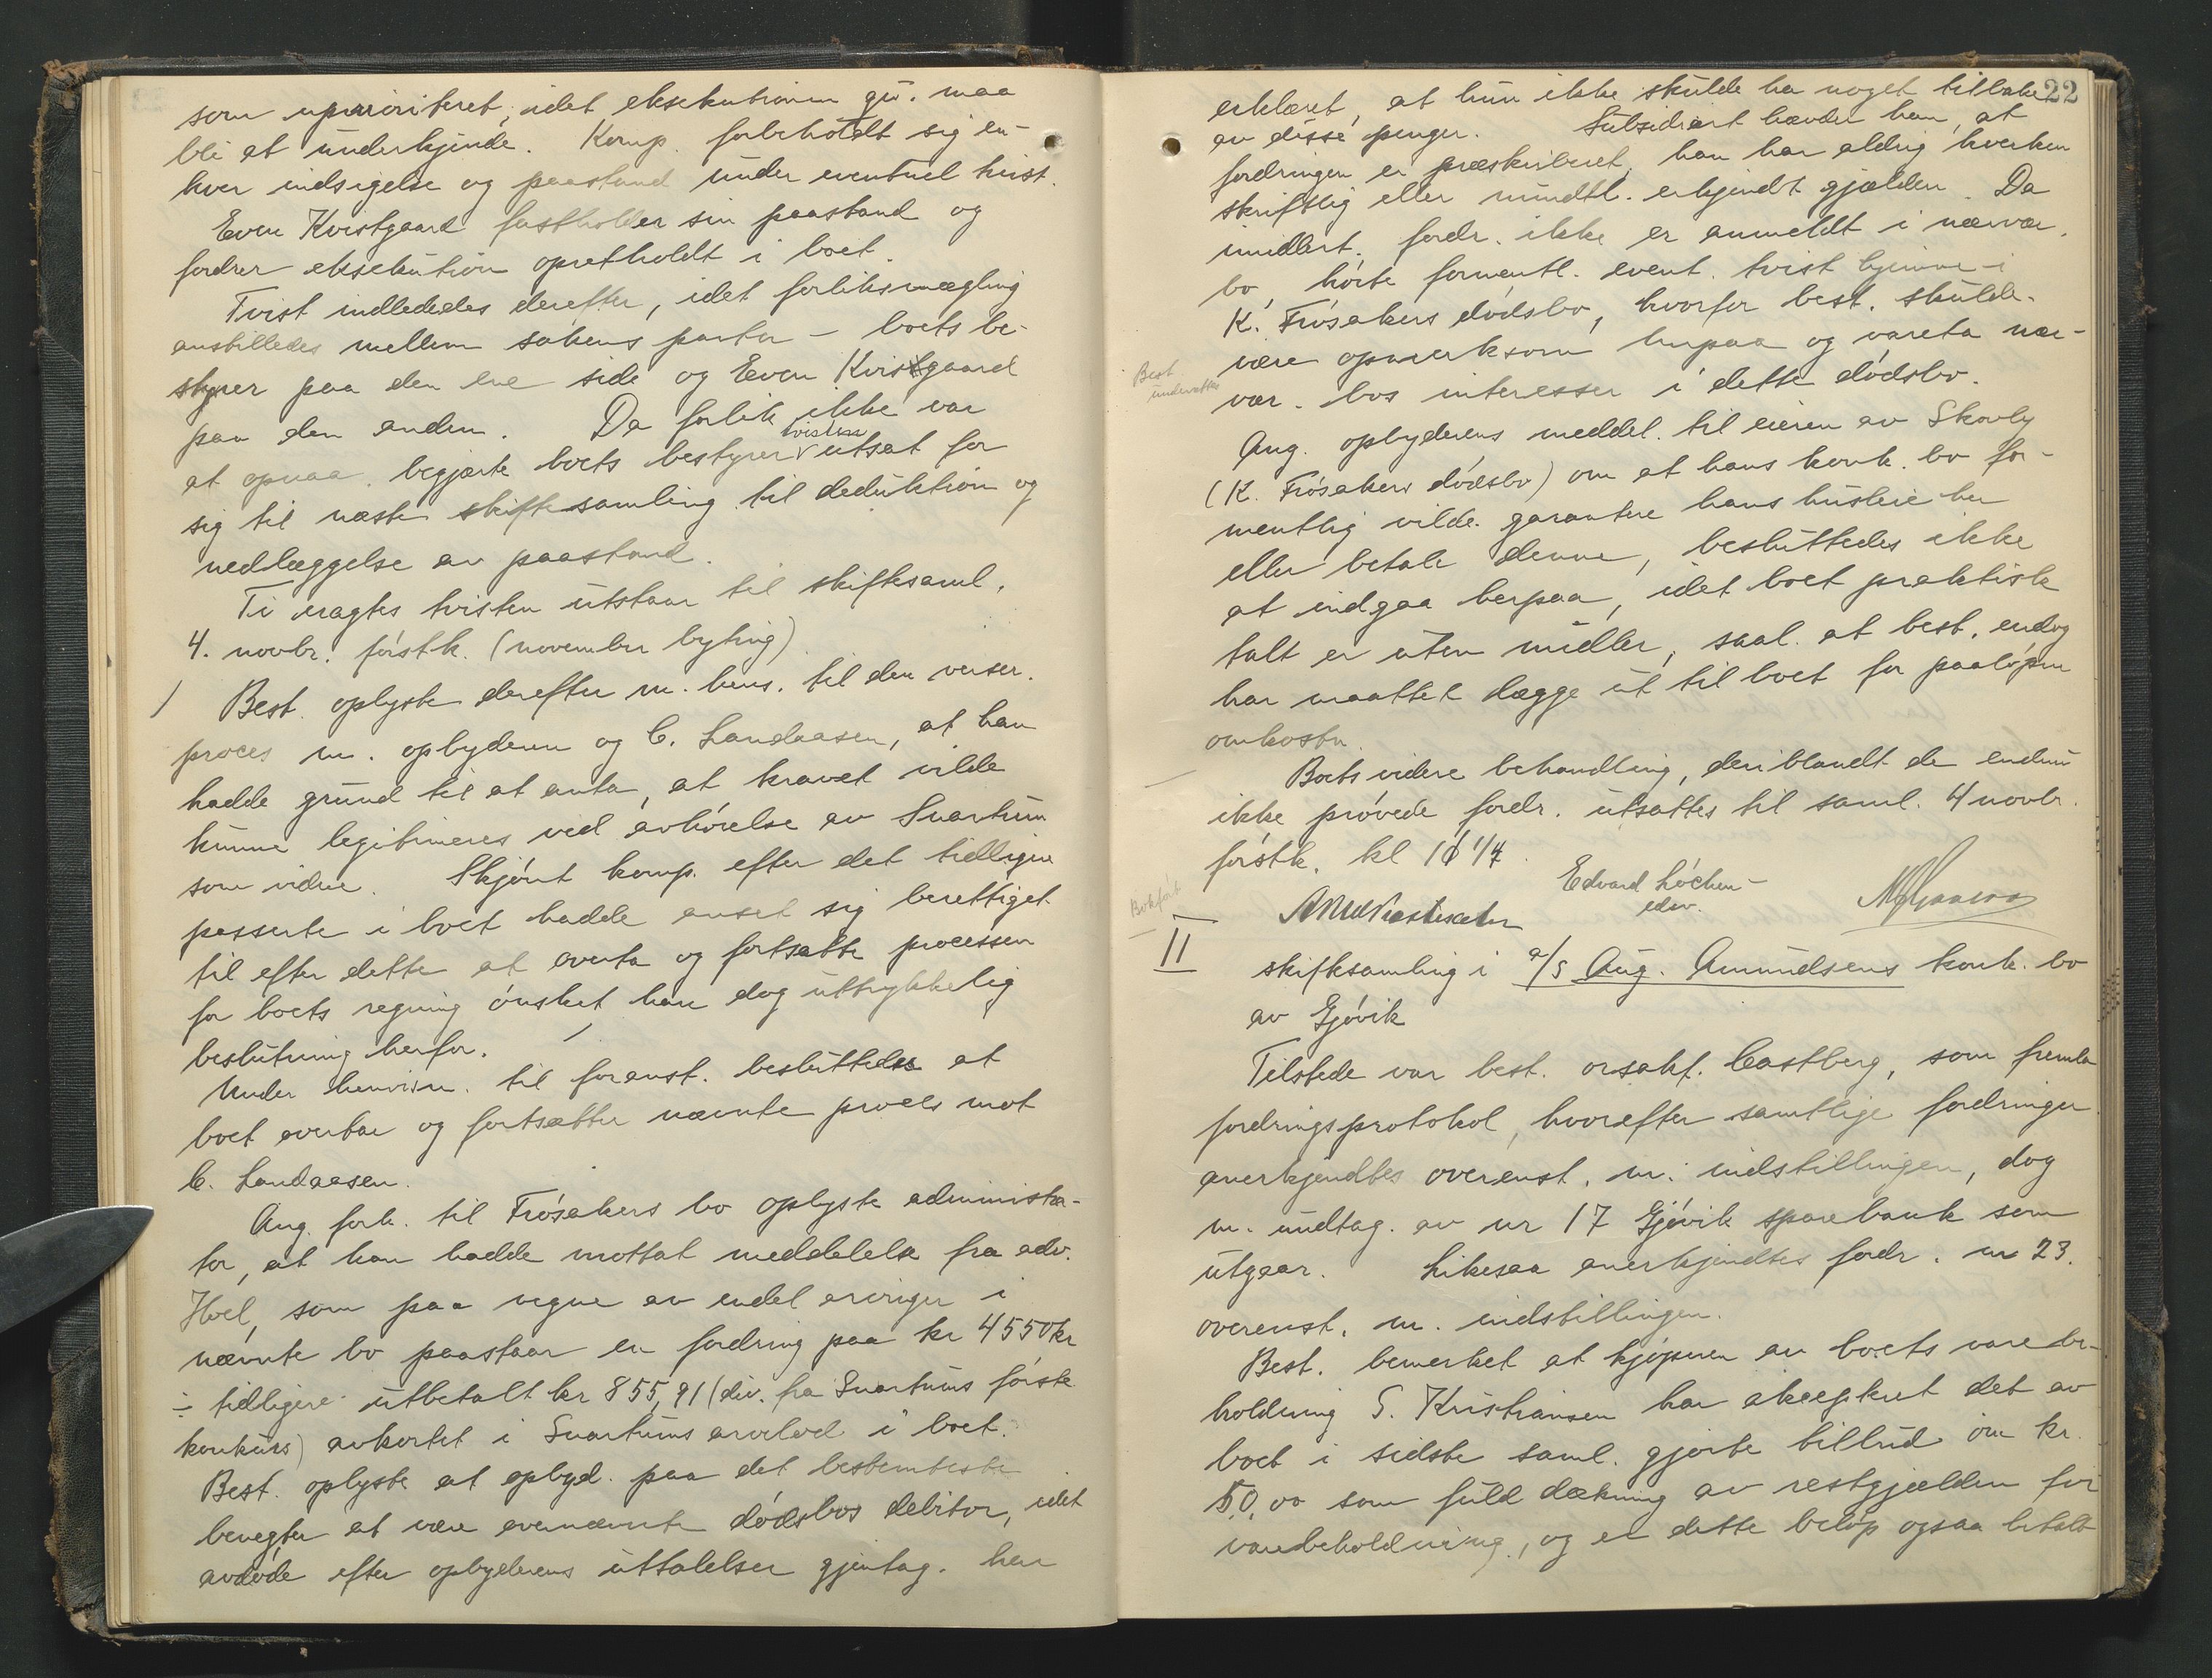 som uprioritert, idet eksekutionen gw. maa
bli at underkjende. Komp. forbeholdt sig en-
hver indsigelse og paastand under eventuel tvist.
Even Kvistgaard fastholder sin paastand og
fordrer eksekution opretholdt i boet.
Tvist indlededes derefter, idet forliksmægling
anstilledes mellem sakens parter - boets be-
styrer paa den ene side og Even Kvistgaard
paa den anden. Da forlik ikke var
at opnaa, begjærte boets bestyrer tvisten utsat for
sig til næste skiftesamling til deduktion og
nedlæggelse av paastand.
Ti eragtes tvisten utstaar til skiftesaml.
4. novbr. førstk. (november byting)
Best. oplyste derefter m. hens. til den verser.
proces m. opbyderen og C. Landaasen, at han
hadde grund til at anta, at kravet vilde
kunne legitimeres ved avhørelse av Svartum
som vidne. Skjønt komp. efter det tidligere
passerte i boet hadde anset sig berettiget
til efter dette at overta og fortsætte processen
for boets regning ønsket han dog uttrykkelig
beslutning herfor.
Under henvisn. til foranst. besluttedes at
boet overtar og fortsætter nævnte proces mot
C. Landaasen.
Ang. fork. til Frøsakers bo oplyste administra-
tor, at han hadde mottat meddelelse fra adv.
Hoel, som paa vegne av endel arvinger i
nævnte bo paastaar en fordring paa kr 4550 kr
÷ tidligere utbetalt kr 855,91 (div. fra Svartums første
konkurs) avkortet i Svartums arvelod i boet.
Best. oplyste at opbyd. paa det bestemteste
benegter at være ovennævnte dødsbos debitor, idet
avdøde efter opbyderens uttalelser gjentag. har
22
erklæret, at hun ikke skulde ha noget tilbake
av disse penger. Subsidiært hævder han, at
fordringen er præskriberet, han har aldrig hverken
skriftlig eller mundtl. erkjendt gjælden. Da
imidlert. fordr. ikke er anmeldt i nærvær.
bo, hørte formentl. event. tvist hjemme i
K. Frøsakers dødsbo, hvorfor best. skulde
være opmerksom herpaa og vareta nær-
Best.
underrettes
vær. bos interesser i dette dødsbo.
Ang. opbyderens meddel. til eieren av Skovly
(K. Frøsakers dødsbo) om at hans konk. bo for-
mentlig vilde garantere hans husleie her
eller betale denne, besluttedes ikke
at indgaa herpaa, idet boet praktisk
talt er uten midler, saal. at best. endog
har maattet lægge ut til boet for paaløpne
omkostn.
Boets videre behandling, deriblandt de endnu
ikke prøvede fordr. utsattes til saml. 4 novbr.
førstk. kl 10 1/4.
Edvard Løchen
edsv.
Bokført
II
skiftesamling i a/s Aug. Amundsens konk. bo
av Gjøvik
Tilstede var best. orsakf. Castberg, som fremla
fordringsprotokol, hvorefter samtlige fordringer
anerkjendtes overenst. m. indstillingen, dog
m. undtag. av nr 17 Gjøvik sparebank som
utgaar. Likesaa anerkjendtes fordr. nr 23.
overenst. m. indstillingen.
Best. bemerket at kjøperen av boets varebe-
holdning S. Kristiansen har akceptert det av
boet i sidste saml. gjorte tilbud om kr.
50,00 som fuld dækning av restgjælden for
varebeholdning, og er dette beløp ogsaa betalt